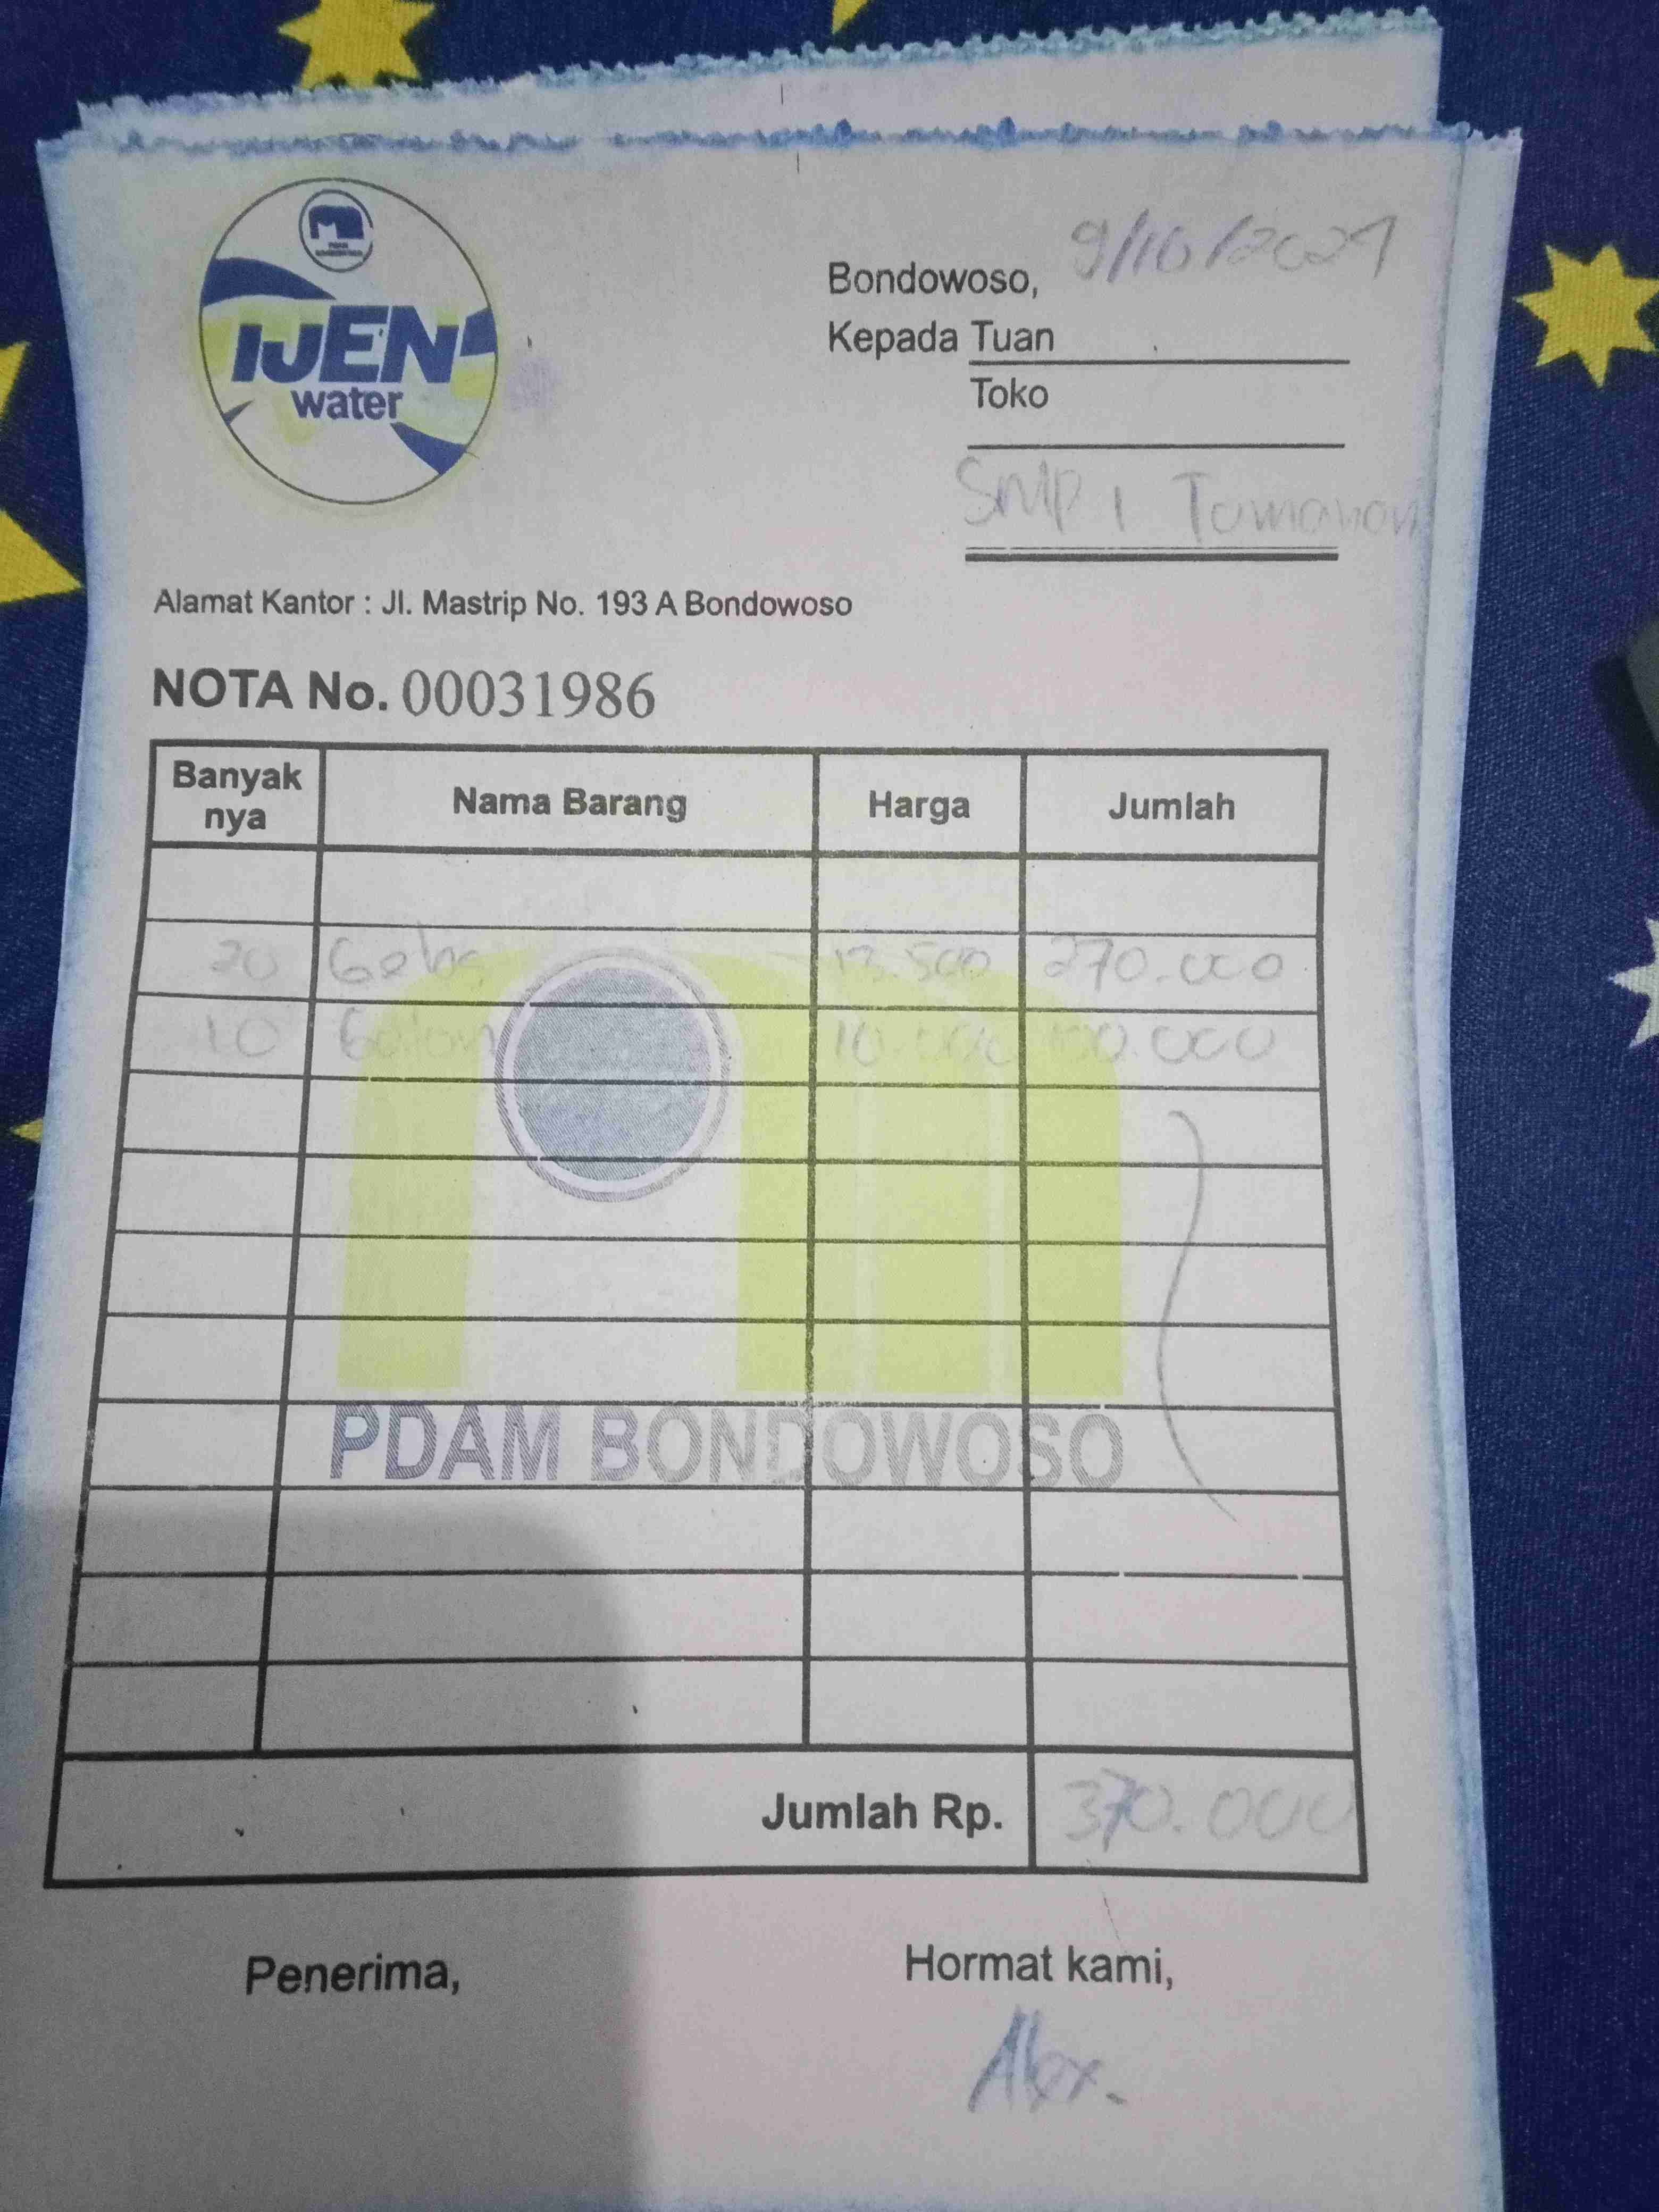 PDAM
BONDOWOSO
IJEN
water
Bondowoso, 9/10/2021
Kepada Tuan
Toko
SMP 1 Tamanan
Alamat Kantor : Jl. Mastrip No. 193 A Bondowoso
NOTA No. 00031986
Banyak nya Nama Barang Harga Jumlah
20 13.500 270.000
10 Galon 10.000 100.000
PDAM BONDOWOSO
Jumlah Rp. 370.000
Penerima, Hormat kami,
Alex.